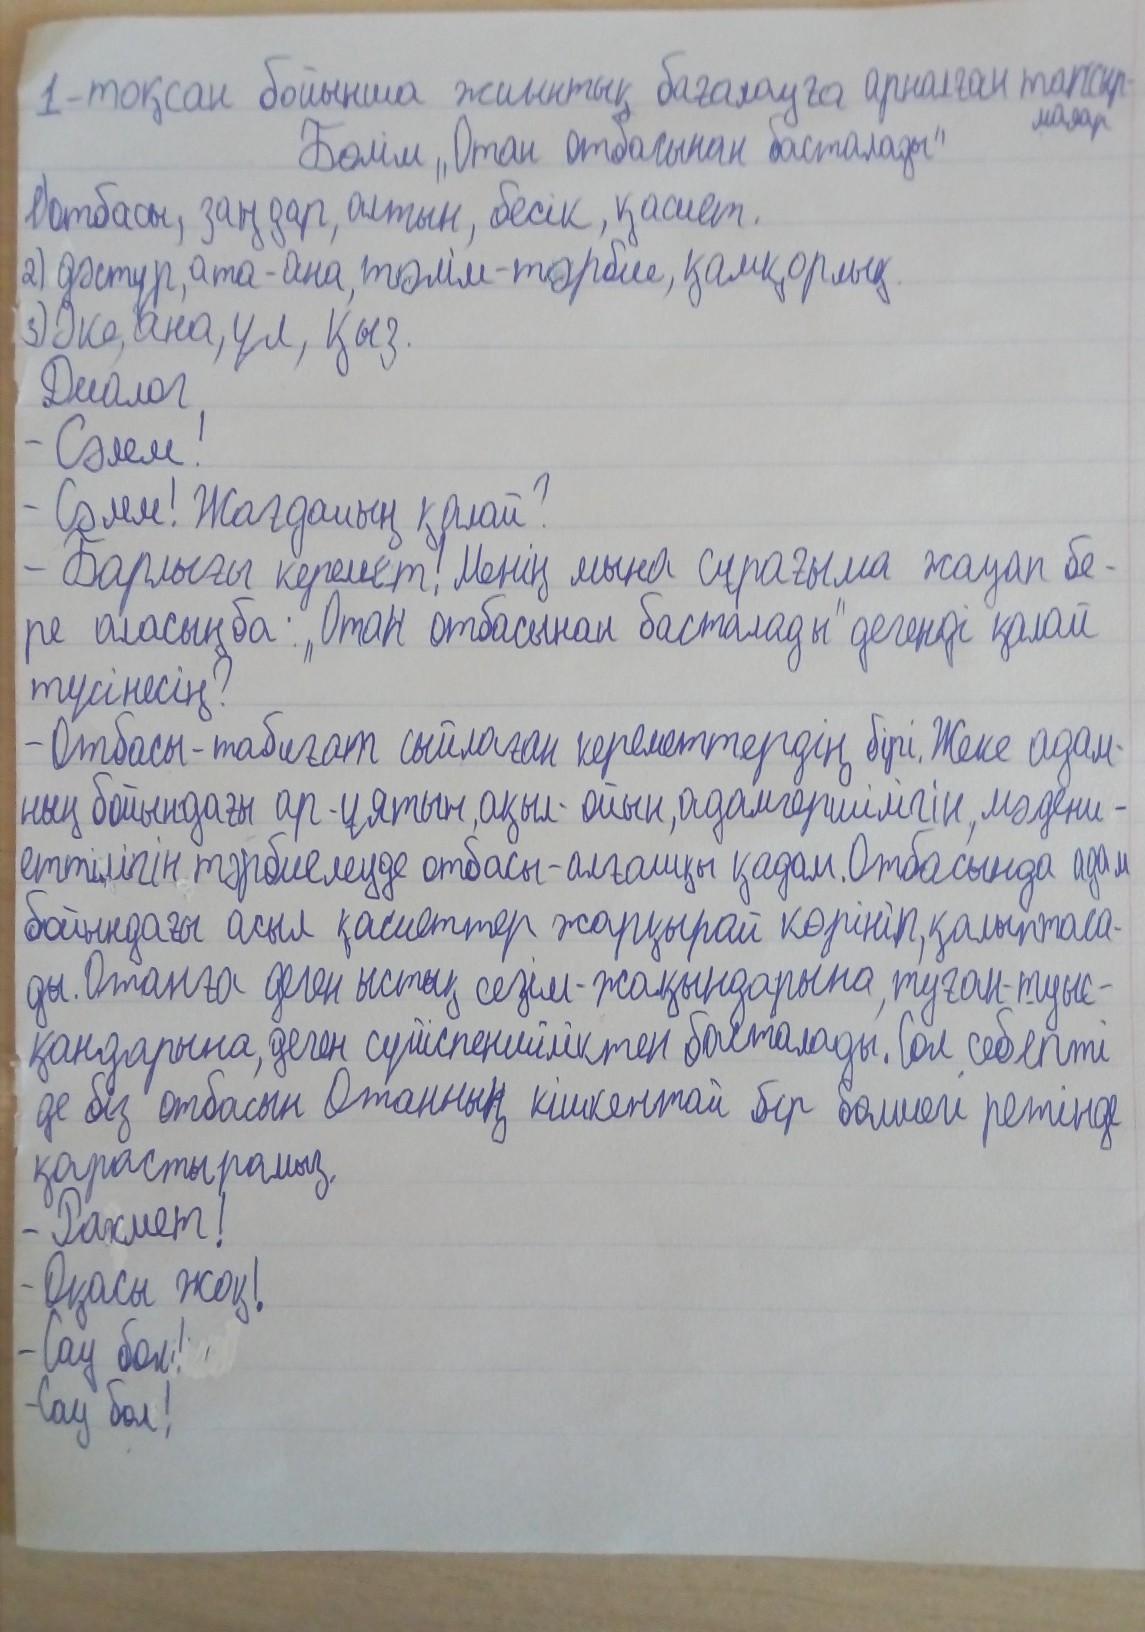 1-тоқсан бойынша жиынтық бағалауға арналған тапсыр-
малар
Бөлім „Отан отбасынан басталады"
1) отбасы, заңдар, алтын, бесік, қасиет.
2) дәстүр, ата-ана, тәлім-тәрбие, қамқорлық.
3) Әке, ана, ұл, қыз.
Диалог
- Сәлем!
- Сәлем! Жағдайың қалай?
- Барлығы керемет! Менің мына сұрағыма жауап бе-
ре аласың ба: „Отан отбасынан басталады" дегенді қалай
түсінесің?
- Отбасы-табиғат сыйлаған кереметтердің бірі. Жеке адам-
ның бойындағы ар-ұятын, ақыл-ойын, адамгершілігін, мәдени-
еттілігін тәрбиелеуде отбасы-алғашқы қадам. Отбасында адам
бойындағы асыл қасиеттер жарқырай көрініп, қалыптаса-
ды. Отанға деген ыстық сезім-жақындарына, туған-туыс-
қандарына, деген сүйіспеншіліктен басталады. Сол себепті
де біз отбасын Отанның кішкентай бір бөлшегі ретінде
қарастырамыз.
- Рахмет!
- Оқасы жоқ!
- Сау бол!
- Сау бол!